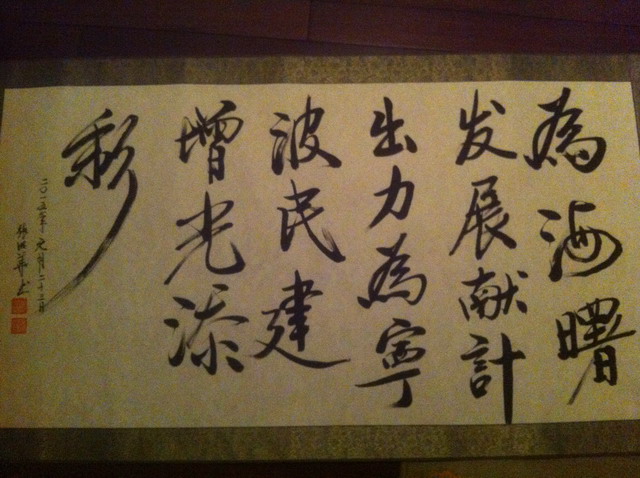 為海曙
发展献計
出力為寧
波民建
增光添
彩
二〇一五年元月二十二日